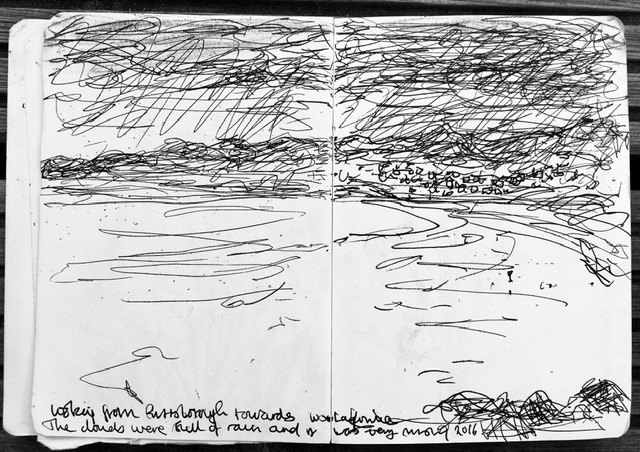 looking from Puttsborough towards Woolacombe
The clouds were full of rain and it was very 2016